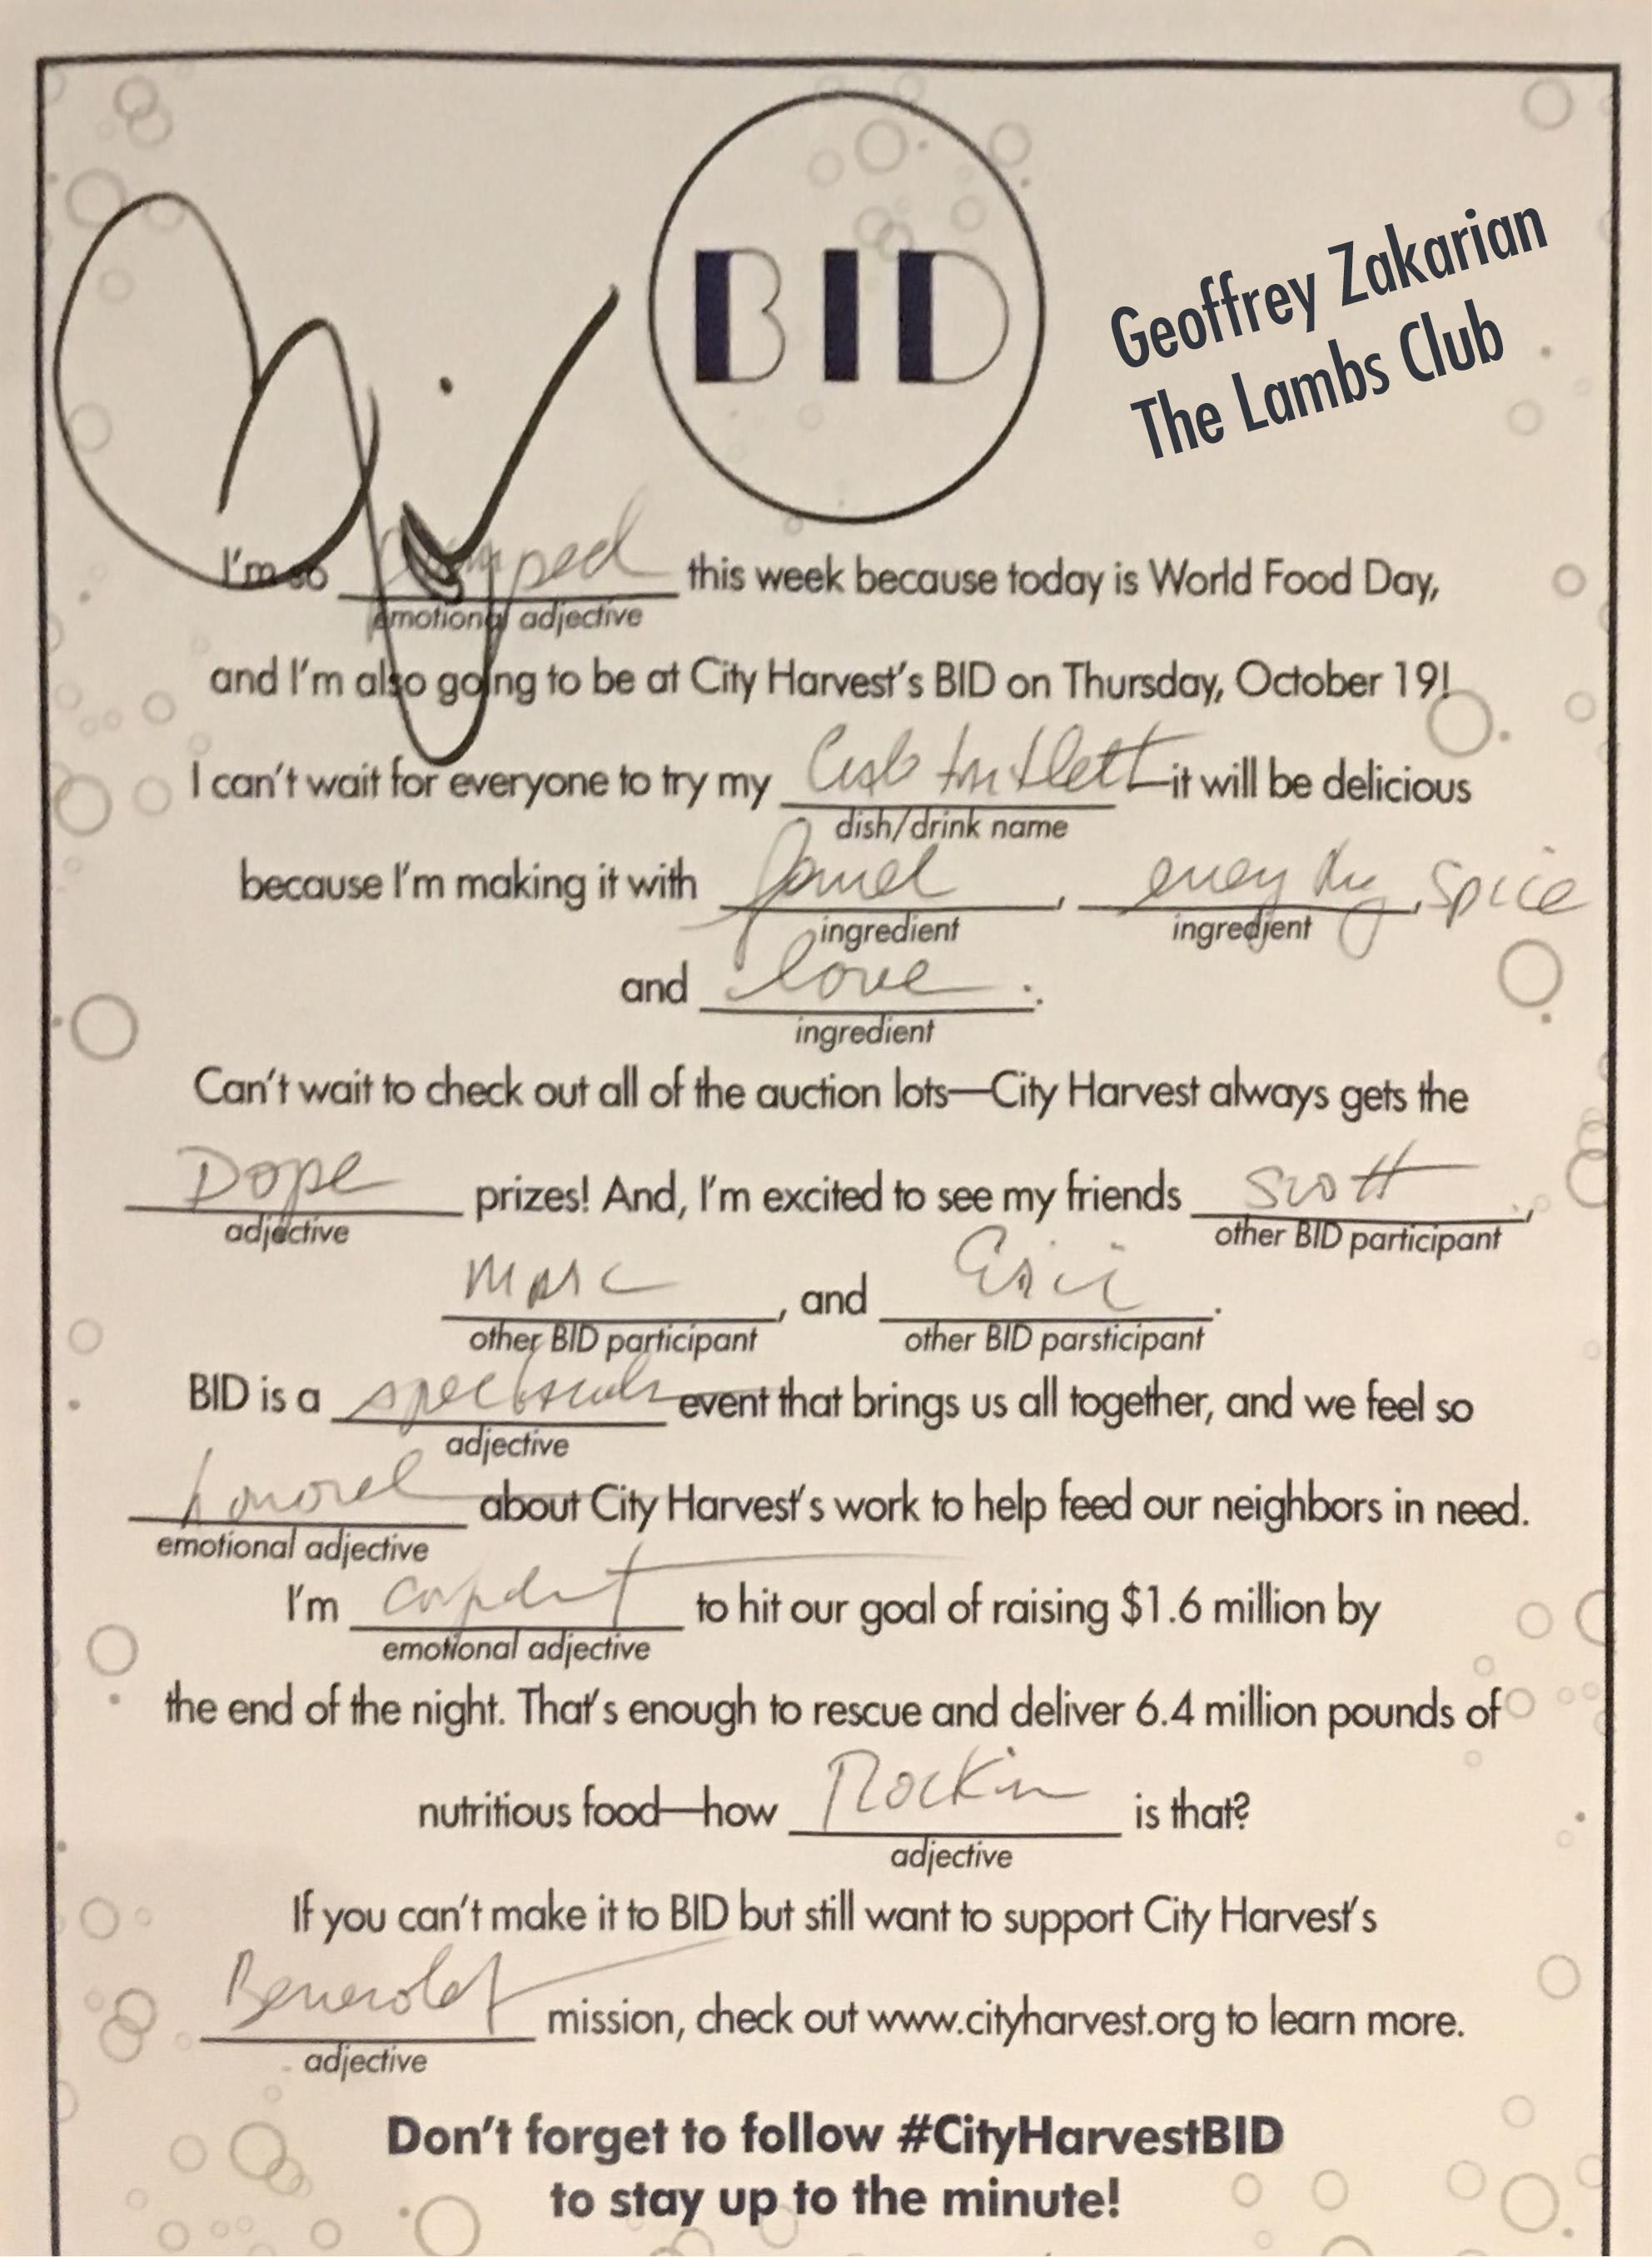 BID
Geoffrey Zakarian
The Lambs Club
I'm so pumped this week because today is World Food Day,
emotional adjective
and I'm also going to be at City Harvest's BID on Thursday, October 19!
I can't wait for everyone to try my —it will be delicious
dish/drink name
because I'm making it with , spice
ingredient ingredient
and love.
ingredient
Can't wait to check out all of the auction lots—City Harvest always gets the
Dope prizes! And, I'm excited to see my friends Scott,
adjective other BID participant
Marc, and .
other BID participant other BID parsticipant
BID is a spectacular event that brings us all together, and we feel so
adjective
honored about City Harvest's work to help feed our neighbors in need.
emotional adjective
I'm to hit our goal of raising $1.6 million by
emotional adjective
the end of the night. That's enough to rescue and deliver 6.4 million pounds of
nutritious food—how Rockin is that?
adjective
If you can't make it to BID but still want to support City Harvest's
mission, check out www.cityharvest.org to learn more.
adjective
Don't forget to follow #CityHarvestBID
to stay up to the minute!